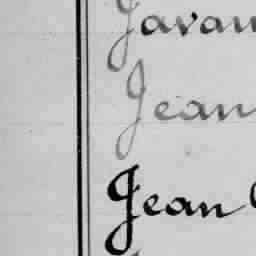 Javau
Jean
Jean